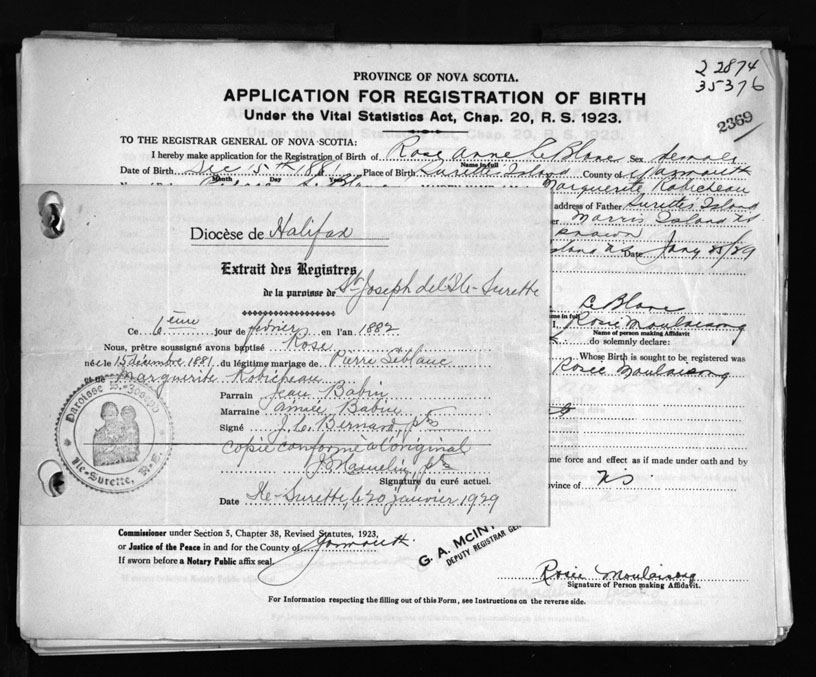 2 2874
35376
2369
PROVINCE OF NOVA SCOTIA.
APPLICATION FOR REGISTRATION OF BIRTH
Under the Vital Statistics Act, Chap. 20, R. S. 1923.
TO THE REGISTRAR GENERAL OF NOVA SCOTIA:
I hereby make application for the Registration of Birth of Rose Anne LeBlanc Sex female
Date of Birth Dec 15th 1881 Place of Birth Surettes Island County of Yarmouth
Month Day Year
Marguerite Robicheau
address of Father Surette's Island
Morris Island NS
Island NS Date Jany 25/29
Le Blanc
name in full
I, Rosie Moulaisong
Name of person making Affidavit
do solemnly declare:
Whose Birth is sought to be registered was
Rosie Moulaisong
me force and effect as if made under oath and by
ovince of N.S.
Diocèse de Halifax
Extrait des Registres
de la paroisse de St Joseph de l'Ile-Surette
Ce 6ième jour de février en l'an 1882
Nous, prêtre soussigné avons baptisé Rose
née le 15 décembre 1881 du légitime mariage de Pierre Leblanc
et de Marguerite Robicheau
Parrain Jean Babin
Marraine Aimée Babin
Signé J. C. Bernard, ptre
Copie conforme à l'original
J. Hamelin, ptre
Signature du curé actuel.
Date Ile-Surette, le 20 janvier 1929
Paroisse St-Joseph
Ile-Surette, N.E.
Commissioner under Section 5, Chapter 38, Revised Statutes, 1923,
or Justice of the Peace in and for the County of Yarmouth.
If sworn before a Notary Public affix seal.
G. A. McINT
DEPUTY REGISTRAR GE
Rosie Moulaisong
Signature of Person making Affidavit.
For Information respecting the filling out of this Form, see Instructions on the reverse side.